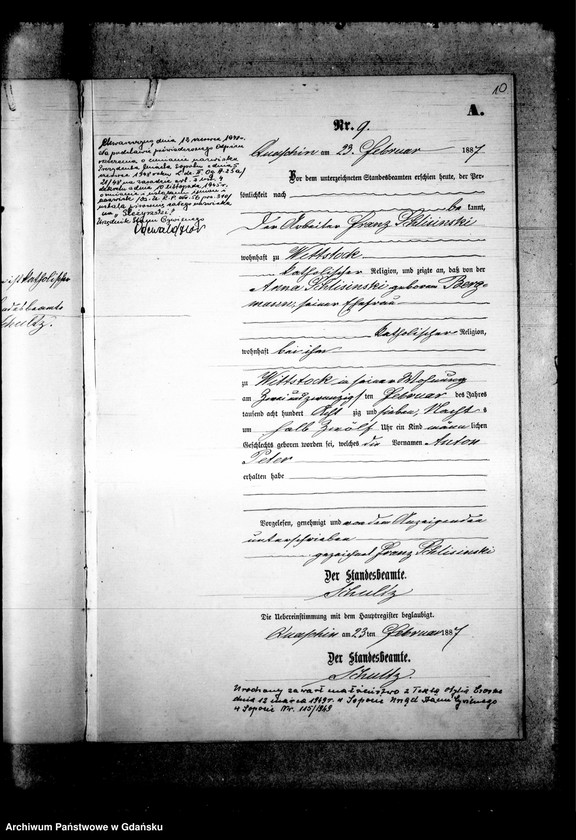 10
A.
Nr. 9.
Quaschin am 23. Februar 1887
Vor dem unterzeichneten Standesbeamten erschien heute, der Per-
sönlichkeit nach
be kannt,
Der Arbeiter Franz Schlisinski
wohnhaft zu Wittstock
katholischer Religion, und zeigte an, daß von der
Anna Schlisinski geborene Berg-
mann, seiner Ehefrau
katholischer Religion,
wohnhaft bei ihm
zu Wittstock in seiner Wohnung
am Zwei und zwanzigsten Februar des Jahres
tausend acht hundert Acht zig und sieben, Nachts
um halb Zwölf Uhr ein Kind männ lichen
Geschlechts geboren worden sei, welches die Vornamen Anton
Peter
erhalten habe
Vorgelesen, genehmigt und von dem Anzeigenden
unterschrieben
gezeichnet Franz Schlisinski
Der Standesbeamte.
Schultz
Die Uebereinstimmung mit dem Hauptregister beglaubigt.
Quaschin am 23 ten Februar 1887
Der Standesbeamte.
Schultz
dnia 13 marca 1949 r. w Sopocie Urząd Stanu Cywilnego
w Sopocie Nr. 115/1949
dnia 13 czerwca
na podstawie
o nazwiska
Urzędnik Stanu Cywilnego
katholischer
Schultz.
Archiwum Państwowe w Gdańsku